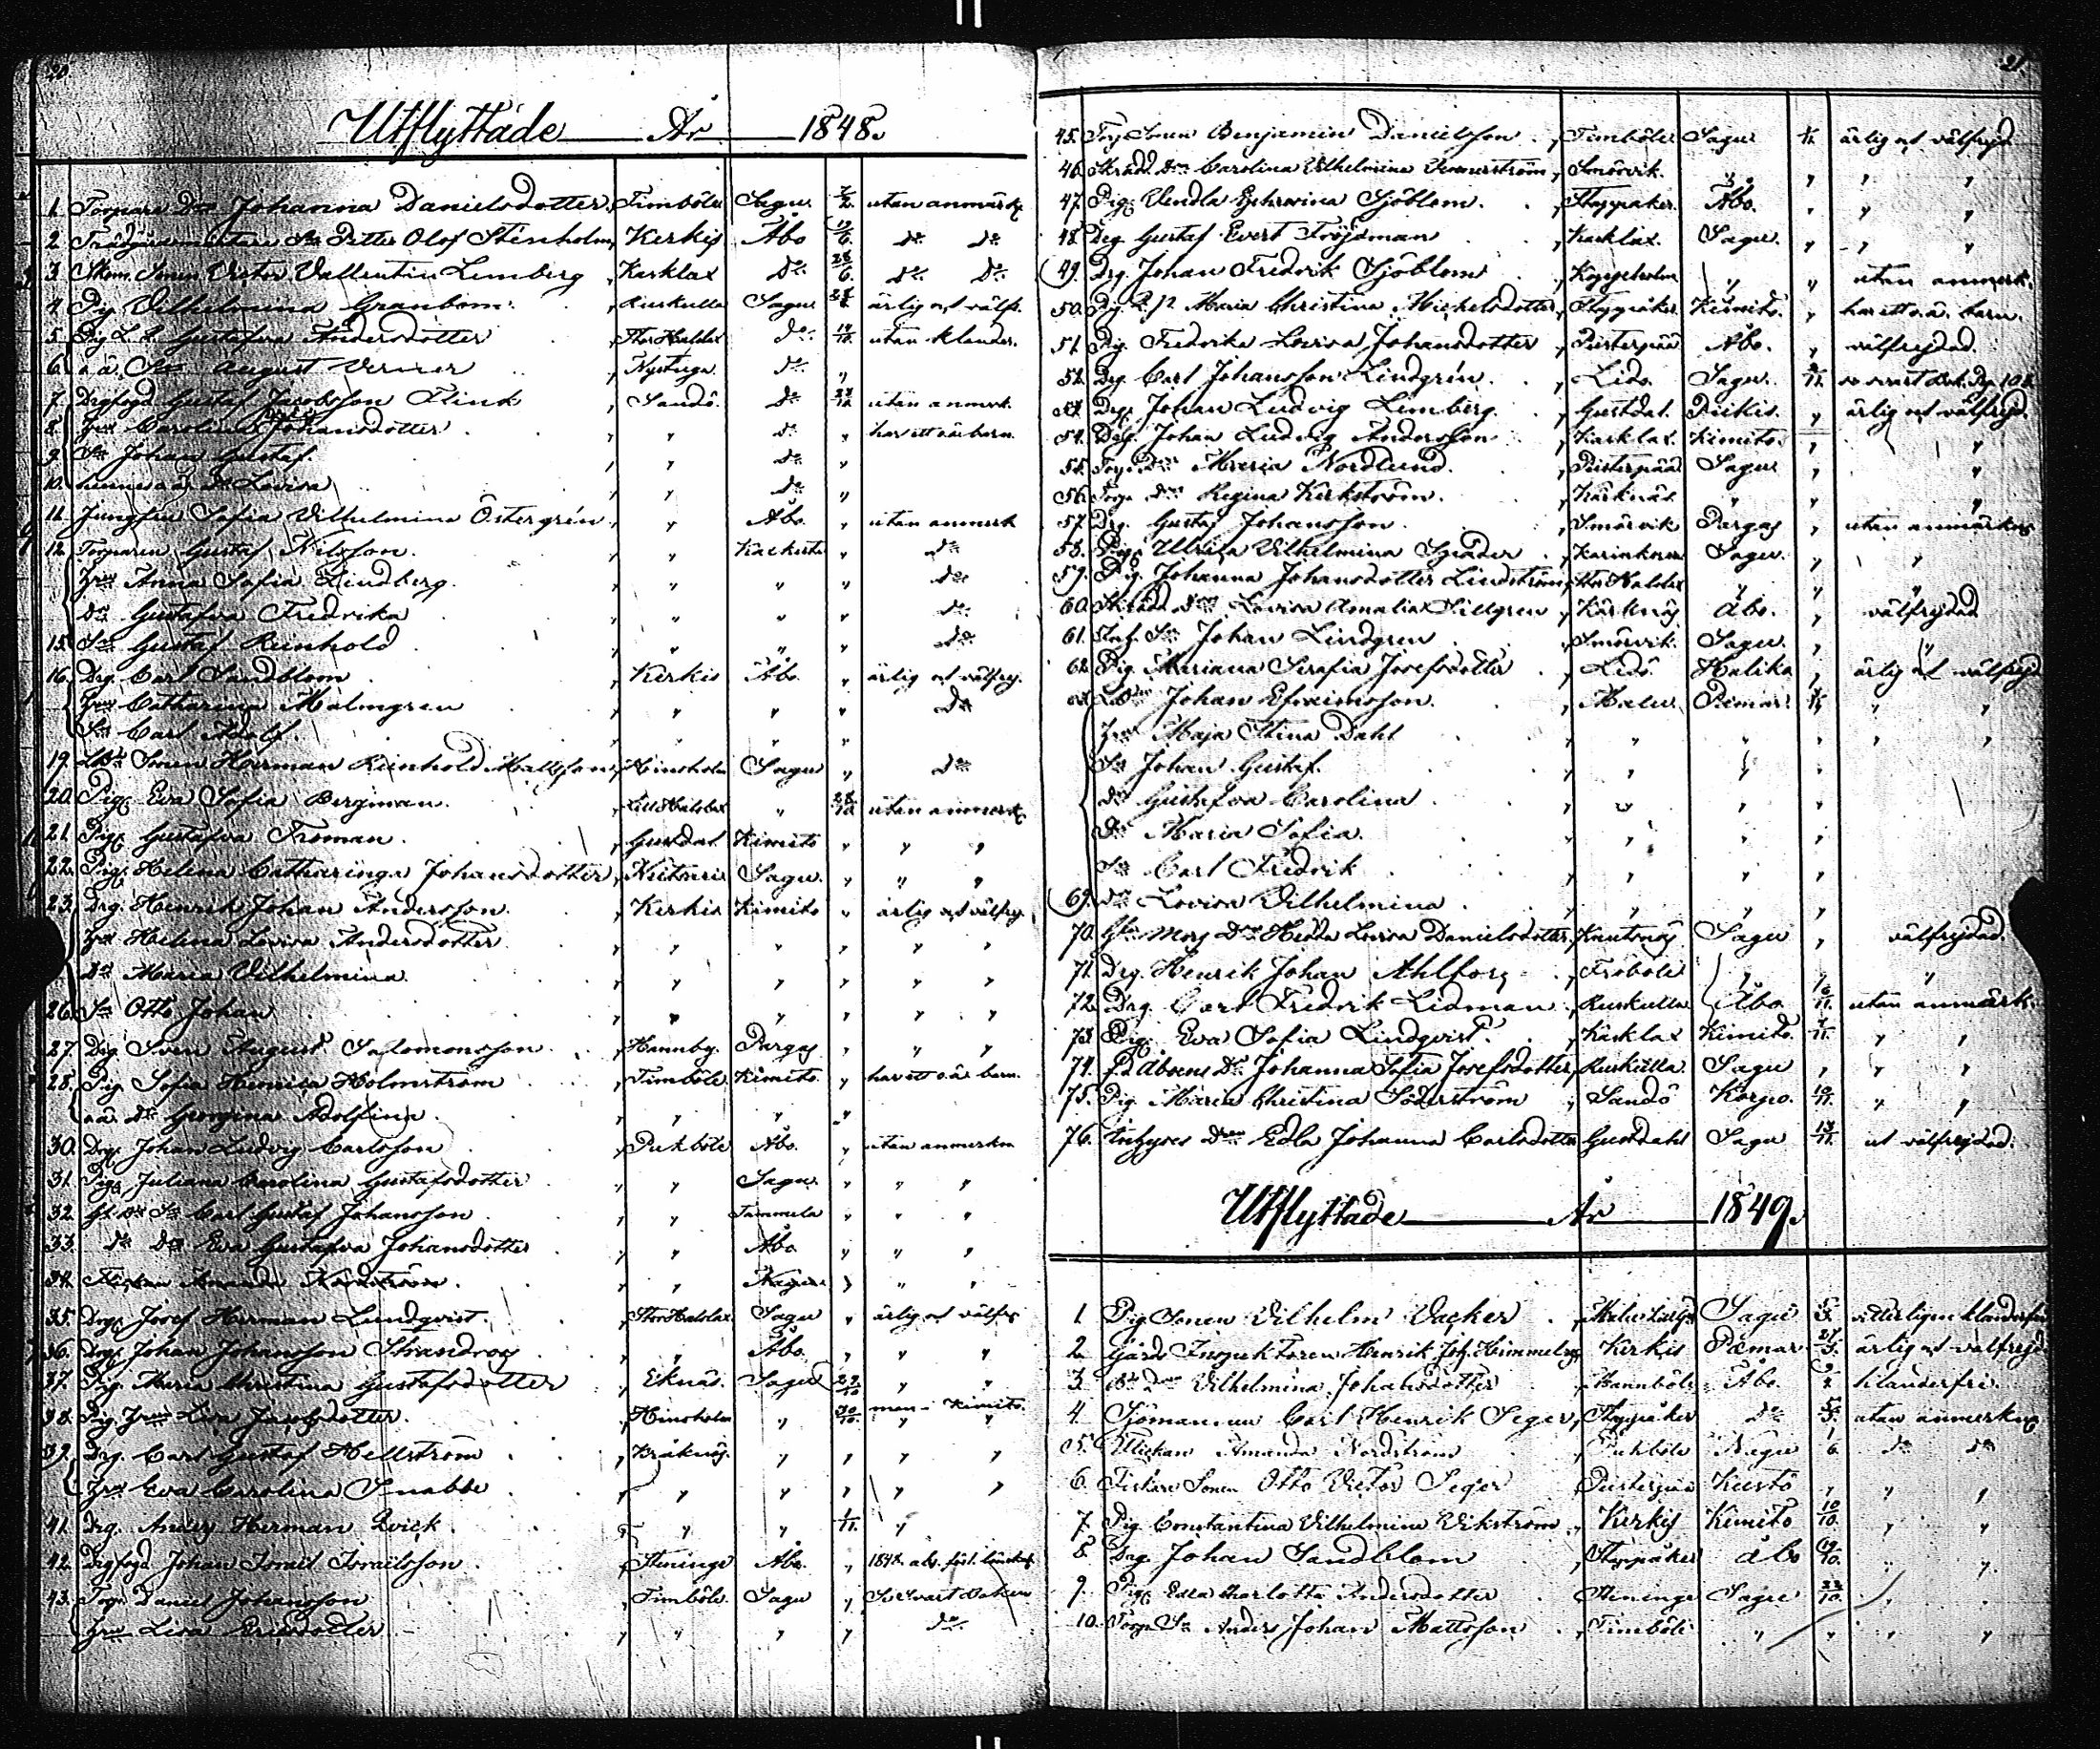 20
Utflyttade År 1848.
1. Torpare Dr Johanna Danielsdotter, Timböle Sagu 2/2 utan anmärk
2. Petter Olof Stenholm, Kerkis Åbo 6 do do
3. Sonen Victor Vallentin Lemberg, Karklax do 28/6 do do
4. Pig Vilhelmina Granbom, Ruskulla Sagu ärlig och välfr.
5. Pig Gustafva Andersdotter, Stor Haldor do utan klander.
6. August Verner, Nystuga do "
7. Drgfogd Gustaf Jacobsson Flink, Sandö do utan anmerk.
8. Hru Carolina Johansdotter " " do " har ett o.ä. barn
9. Sn Johan Gustaf " " do "
10. Dr Lovisa " " do "
11. Jungfru Sofia Vilhelmina Östergrén " " Åbo " utan anmerk
12. Torparen Gustaf Nilsson " " " do
Hru Anna Sofia Lindberg " " " " do
dr Gustafva Fredrika " " " " do
15. Sn Gustaf Reinhold " " " " do
16. Drg. Carl Sandblom, Kerkis Åbo " ärlig och välfrej.
Hru Catharina Malmgren " " " " do
Sn Carl Adolf " " " "
19. Sonen Herman Reinhold Mattsson, Hinsholm Sagu " do
20. Pig. Eva Sofia Bergman, " 28/10 utan anmerk
21. Pig. Gustafva Froman, Gustdal Kimito " " "
22. Pig. Helena Catharina Johansdotter, Sagu " " "
23. Drg. Henrik Johan Andersson, Kerkis Kimito " ärlig och välfrej
Hru Helena Lovisa Andersdotter " " " " "
Dr Maria Vilhelmina " " " " "
26. Sn Otto Johan " " " " "
27. Drg Sven August Salomonsson, Hannby Pargas " " "
28. Pig. Sofia Henrica Holmström, Timböle Kimito " har ett o.ä. barn
o.ä. dr Georgina Adolfina " " " "
30. Drg. Johan Ludvig Carlsson, Pukböle Åbo " utan anmerkn
31. Pig. Juliana Carolina Gustafsdotter " " Sagu " " "
32. Sn Carl Gustaf Johansson " " Tammela " " "
33. do Dr Eva Gustafva Johansdotter " " Åbo " " "
34. Flickan Amanda Nordström " " Nagu " " "
35. Drg. Josef Herman Lundqvist, Sagu " ärlig och välfr
36. Drg. Johan Johansson Strandroos " " Åbo " " "
37. Pig. Maria Christina Gustafsdotter, Eknäs. Sagu " "
38. Pig. Hru Lisa Jacobsdotter, Hinsholm " 30/10 Kimito.
39. Drg. Carl Gustaf Hellström, Kråknäs " " " "
Hru Eva Carolina Snabbe " " " " "
41. Drg. Anders Herman Qvick " " " 1/11 "
42. Drgfogd Johan Israel Israelsson, Steninge Åbo "
43. Torp. Daniel Johansson, Timböle Sagu "
Hru Lisa Ericsdotter " " " " do
21
45. Torp Sonen Benjamin Danielsson, Timböle Sagu ärlig och välfrejd
46. Skrädd. Dr Carolina Vilhelmina Vennerström, Smörvik " " " "
47. Pig. Vendla Sjöblom, Stoppåker Åbo " " "
48. Drg. Gustaf Evert Fröjdman, Karklax Sagu " " "
49. Drg. Johan Fredrik Sjöblom, " " utan anmerk.
50. Pig. Maria Christina Michelsdotter, Stoppåker Kimito " har ett o.ä. barn.
51. Pig. Fredrika Lovisa Johansdotter, Åbo " välfrejdad
52. Drg. Carl Johansson Lindgrén, Lidö Sagu
53. Drg. Johan Ludvig Limberg, Gustdal Piikis " ärlig och välfrejd.
54. Drg. Johan Ludvig Andersson, Karklax Kimito " "
55. Torp. Dr Maria Nordlund, Sagu " "
56. Torp. Dr Regina Kerkström, " " "
57. Drg. Gustaf Johansson, Smörvik Pargas " utan anmärkn
58. Pig. Ulrica Vilhelmina Spåder, Sagu " "
59. Pig. Johanna Johansdotter Lindström, " " "
60. Skrädd. Dr Lovisa Amalia Sillgren, Åbo " välfrejdad
61. Inh. Sn Johan Lindgren, Smörvik Sagu " "
62. Pig. Mariana Serafia Josefsdotter, Lidö Halika " ärlig och välfrejd
Johan Efraimsson, Malu Pemar " "
Hru Maja Stina Dahl " " " " "
Sn Johan Gustaf " " " "
dr Gustafva Carolina " " " "
dr Maria Sofia " " " "
Sn Carl Fredrik " " " "
69. dr Lovisa Vilhelmina " " " "
70. Dr Hedda Lovisa Danielsdotter, Knutnäs Sagu " välfrejdad
71. Drg. Henrik Johan Ahlfors, Fröböle " "
72. Drg. Carl Fredrik Lidman, Ruskulla Åbo utan anmärk.
73. Pig. Eva Sofia Lindqvist, Karklax Kimito " "
74. Dr Johanna Sofia Josefsdotter, Ruskulla Sagu " " "
75. Pig Maria Christina Söderström, Sandö Korpo 10/11 " "
76. Inhyses Dr Edla Johanna Carlsdotter, Gustdahl Sagu 13/11 välfrejdad.
Utflyttade År 1849.
1 Pig Sonen Vilhelm Vacker, Sagu
2 Gårds Inspektoren Henrik Joh. Kerkis Pemar ärlig och välfrejd
3. Vilhelmina Johansdotter, Åbo klanderfri.
4. Sjöman Carl Henrik Seger, Stoppåker do utan anmerkng
5. Flickan Amanda Nordström, Pukböle Nagu 1/6 do do
6. Fiskare Sonen Otto Victor Seger Kustö " " "
7. Pig. Constantina Vilhelmina Vikström, Kerkis Kimito 10/10 " "
8. Drg Johan Sandblom, Stoppåker Åbo 19/10 " "
9. Pig. Edla Charlotta Andersdotter, Steninge Sagu 23/10 " "
10. Torp. Sn Anders Johan Mattsson, Timböle " " " "